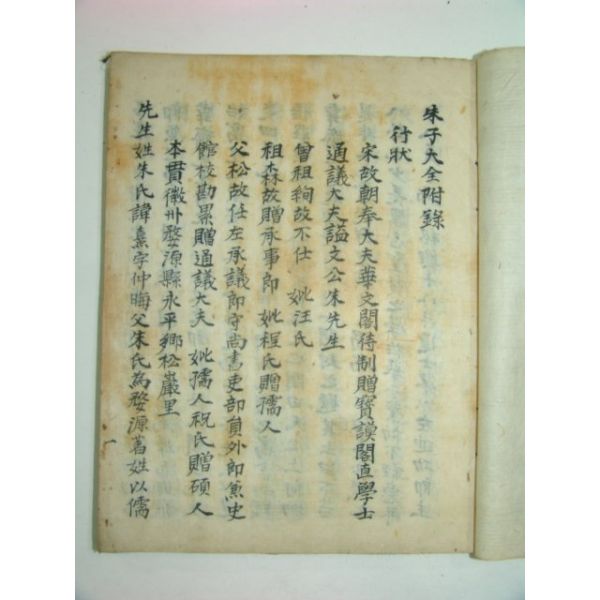 朱子大全附錄
行狀
宋故朝奉大夫華文閣待制贈寶謨閣直學士
通議大夫謚文公朱先生
曾祖絢故不仕 妣汪氏
祖森故贈承事郎 妣程氏贈孺人
父松故任左承議郎守尚書吏部員外郎兼史
館校勘累贈通議大夫 妣孺人祝氏贈碩人
本貫徽州婺源縣永平鄉松巖里
先生姓朱氏諱熹字仲晦父朱氏為婺源著姓以儒